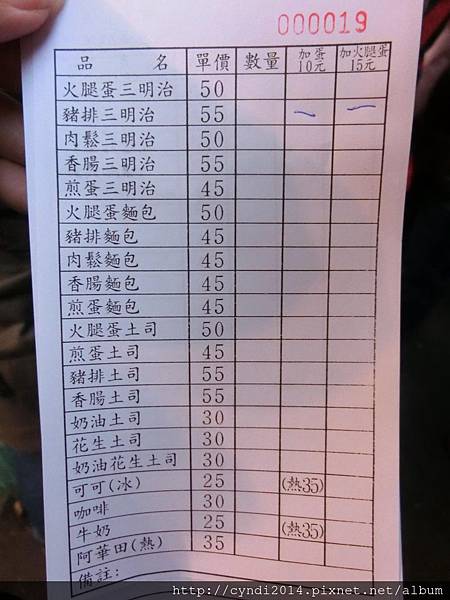 000019
品 名 單價 數量 加蛋10元 加火腿蛋15元
火腿蛋三明治 50
豬排三明治 55 一 一
肉鬆三明治 50
香腸三明治 55
煎蛋三明治 45
火腿蛋麵包 50
豬排麵包 45
肉鬆麵包 45
香腸麵包 45
煎蛋麵包 45
火腿蛋土司 50
煎蛋土司 45
豬排土司 55
香腸土司 55
奶油土司 30
花生土司 30
奶油花生土司 30
可可(冰) 25 (熱35)
咖啡 30
牛奶 25 (熱35)
阿華田(熱) 35
備註:
http://cyndi2014.pixnet.net/album